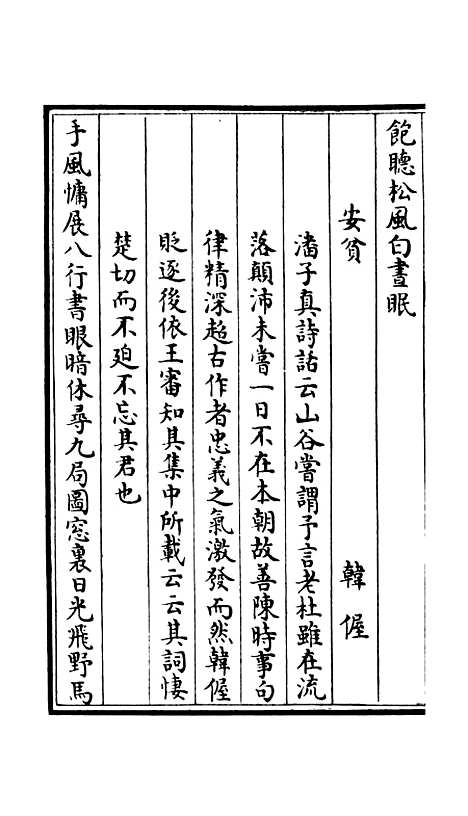 飽聽松風白晝眠
安貧　韓偓
潘子真詩話云山谷嘗謂予言老杜雖在流
落顛沛未嘗一日不在本朝故善陳時事句
律精深超古作者忠義之氣激發而然韓偓
貶逐後依王審知其集中所載云云其詞悽
楚切而不迫不忘其君也
手風慵展八行書眼暗休尋九局圖窓裏日光飛野馬